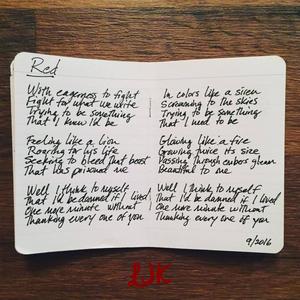 Red
With eagerness to fight
Fight for what we write
Trying to be something
That I knew I'd be
Feeling like a Lion
Roaring for his life
Seeking to bleed that beast
That has poisoned me
Well I think to myself
That I'd be damned if I lived
One more minute without
Thanking every one of you
In colors like a siren
Screaming to the skies
Trying to be something
That I need to be
Glowing like a fire
Growing twice its size
Passing through embers gleam
Beautiful to me
Well I think to myself
That I'd be damned if I lived
One more minute without
Thanking every one of you
9/2016
LJK